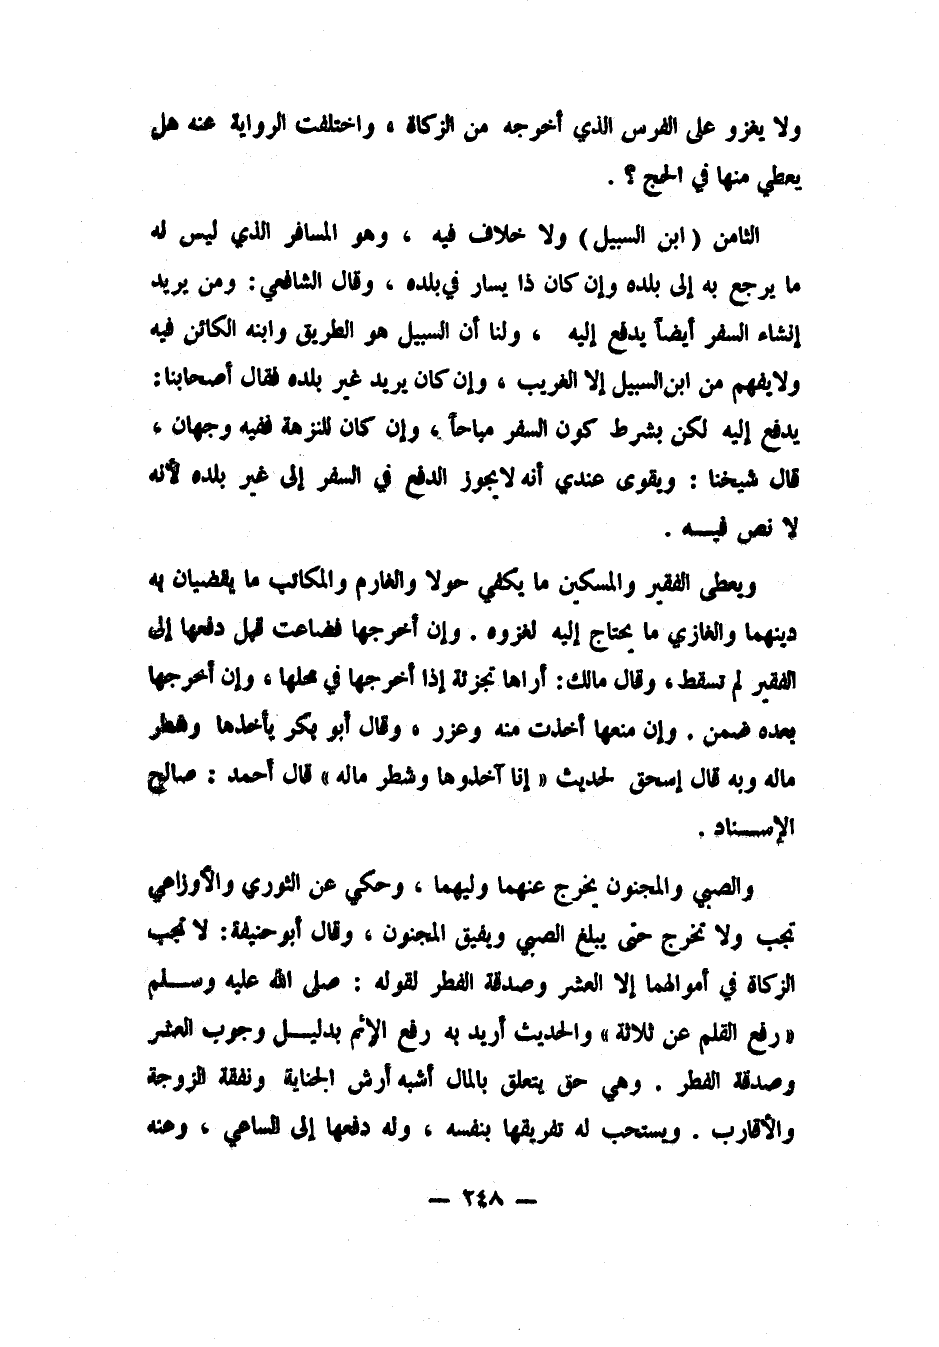 ولا يغزو على الفرس الذي أخرجه من الزكاة ، واختلفت الرواية عنه هل
يعطي منها في الحج ؟ .
الثامن ( ابن السبيل ) ولا خلاف فيه ، وهو المسافر الذي ليس له
ما يرجع به إلى بلده وإن كان ذا يسار في بلده ، وقال الشافعي : ومن يريد
إنشاء السفر أيضاً يدفع إليه ، ولنا أن السبيل هو الطريق وابنه الكائن فيه
ولا يفهم من ابن السبيل إلا الغريب ، وإن كان يريد غير بلده فقال أصحابنا :
يدفع إليه لكن بشرط كون السفر مباحاً ، وإن كان للنزهة ففيه وجهان ،
قال شيخنا : ويقوى عندي أنه لا يجوز الدفع في السفر إلى غير بلده لأنه
لا نص فيـــه .
ويعطى الفقير والمسكين ما يكفي حولا والغارم والمكاتب ما يقضيان به
دينهما والغازي ما يحتاج إليه لغزوه . وإن أخرجها فضاعت قبل دفعها إلى
الفقير لم تسقط ، وقال مالك : أراها تجزئة إذا أخرجها في محلها ، وإن أخرجها
بعده ضمن . وإن منعها أخذت منه وعزر ، وقال أبو بكر يأخذها وشطر
ماله وبه قال إسحق لحديث « إنا آخذوها وشطر ماله » قال أحمد : صالح
الإســـناد .
والصبي والمجنون يخرج عنهما وليهما ، وحكي عن الثوري والأوزاعي
تجب ولا تخرج حتى يبلغ الصبي ويفيق المجنون ، وقال أبو حنيفة : لا تجب
الزكاة في أموالهما إلا العشر وصدقة الفطر لقوله : صلى الله عليه وســـلم
« رفع القلم عن ثلاثة » والحديث أريد به رفع الإثم بدليـــل وجوب العشر
وصدقة الفطر . وهي حق يتعلق بالمال أشبه أرش الجناية ونفقة الزوجة
والأقارب . ويستحب له تفريقها بنفسه ، وله دفعها إلى الساعي ، وعنه
— ٢٤٨ —